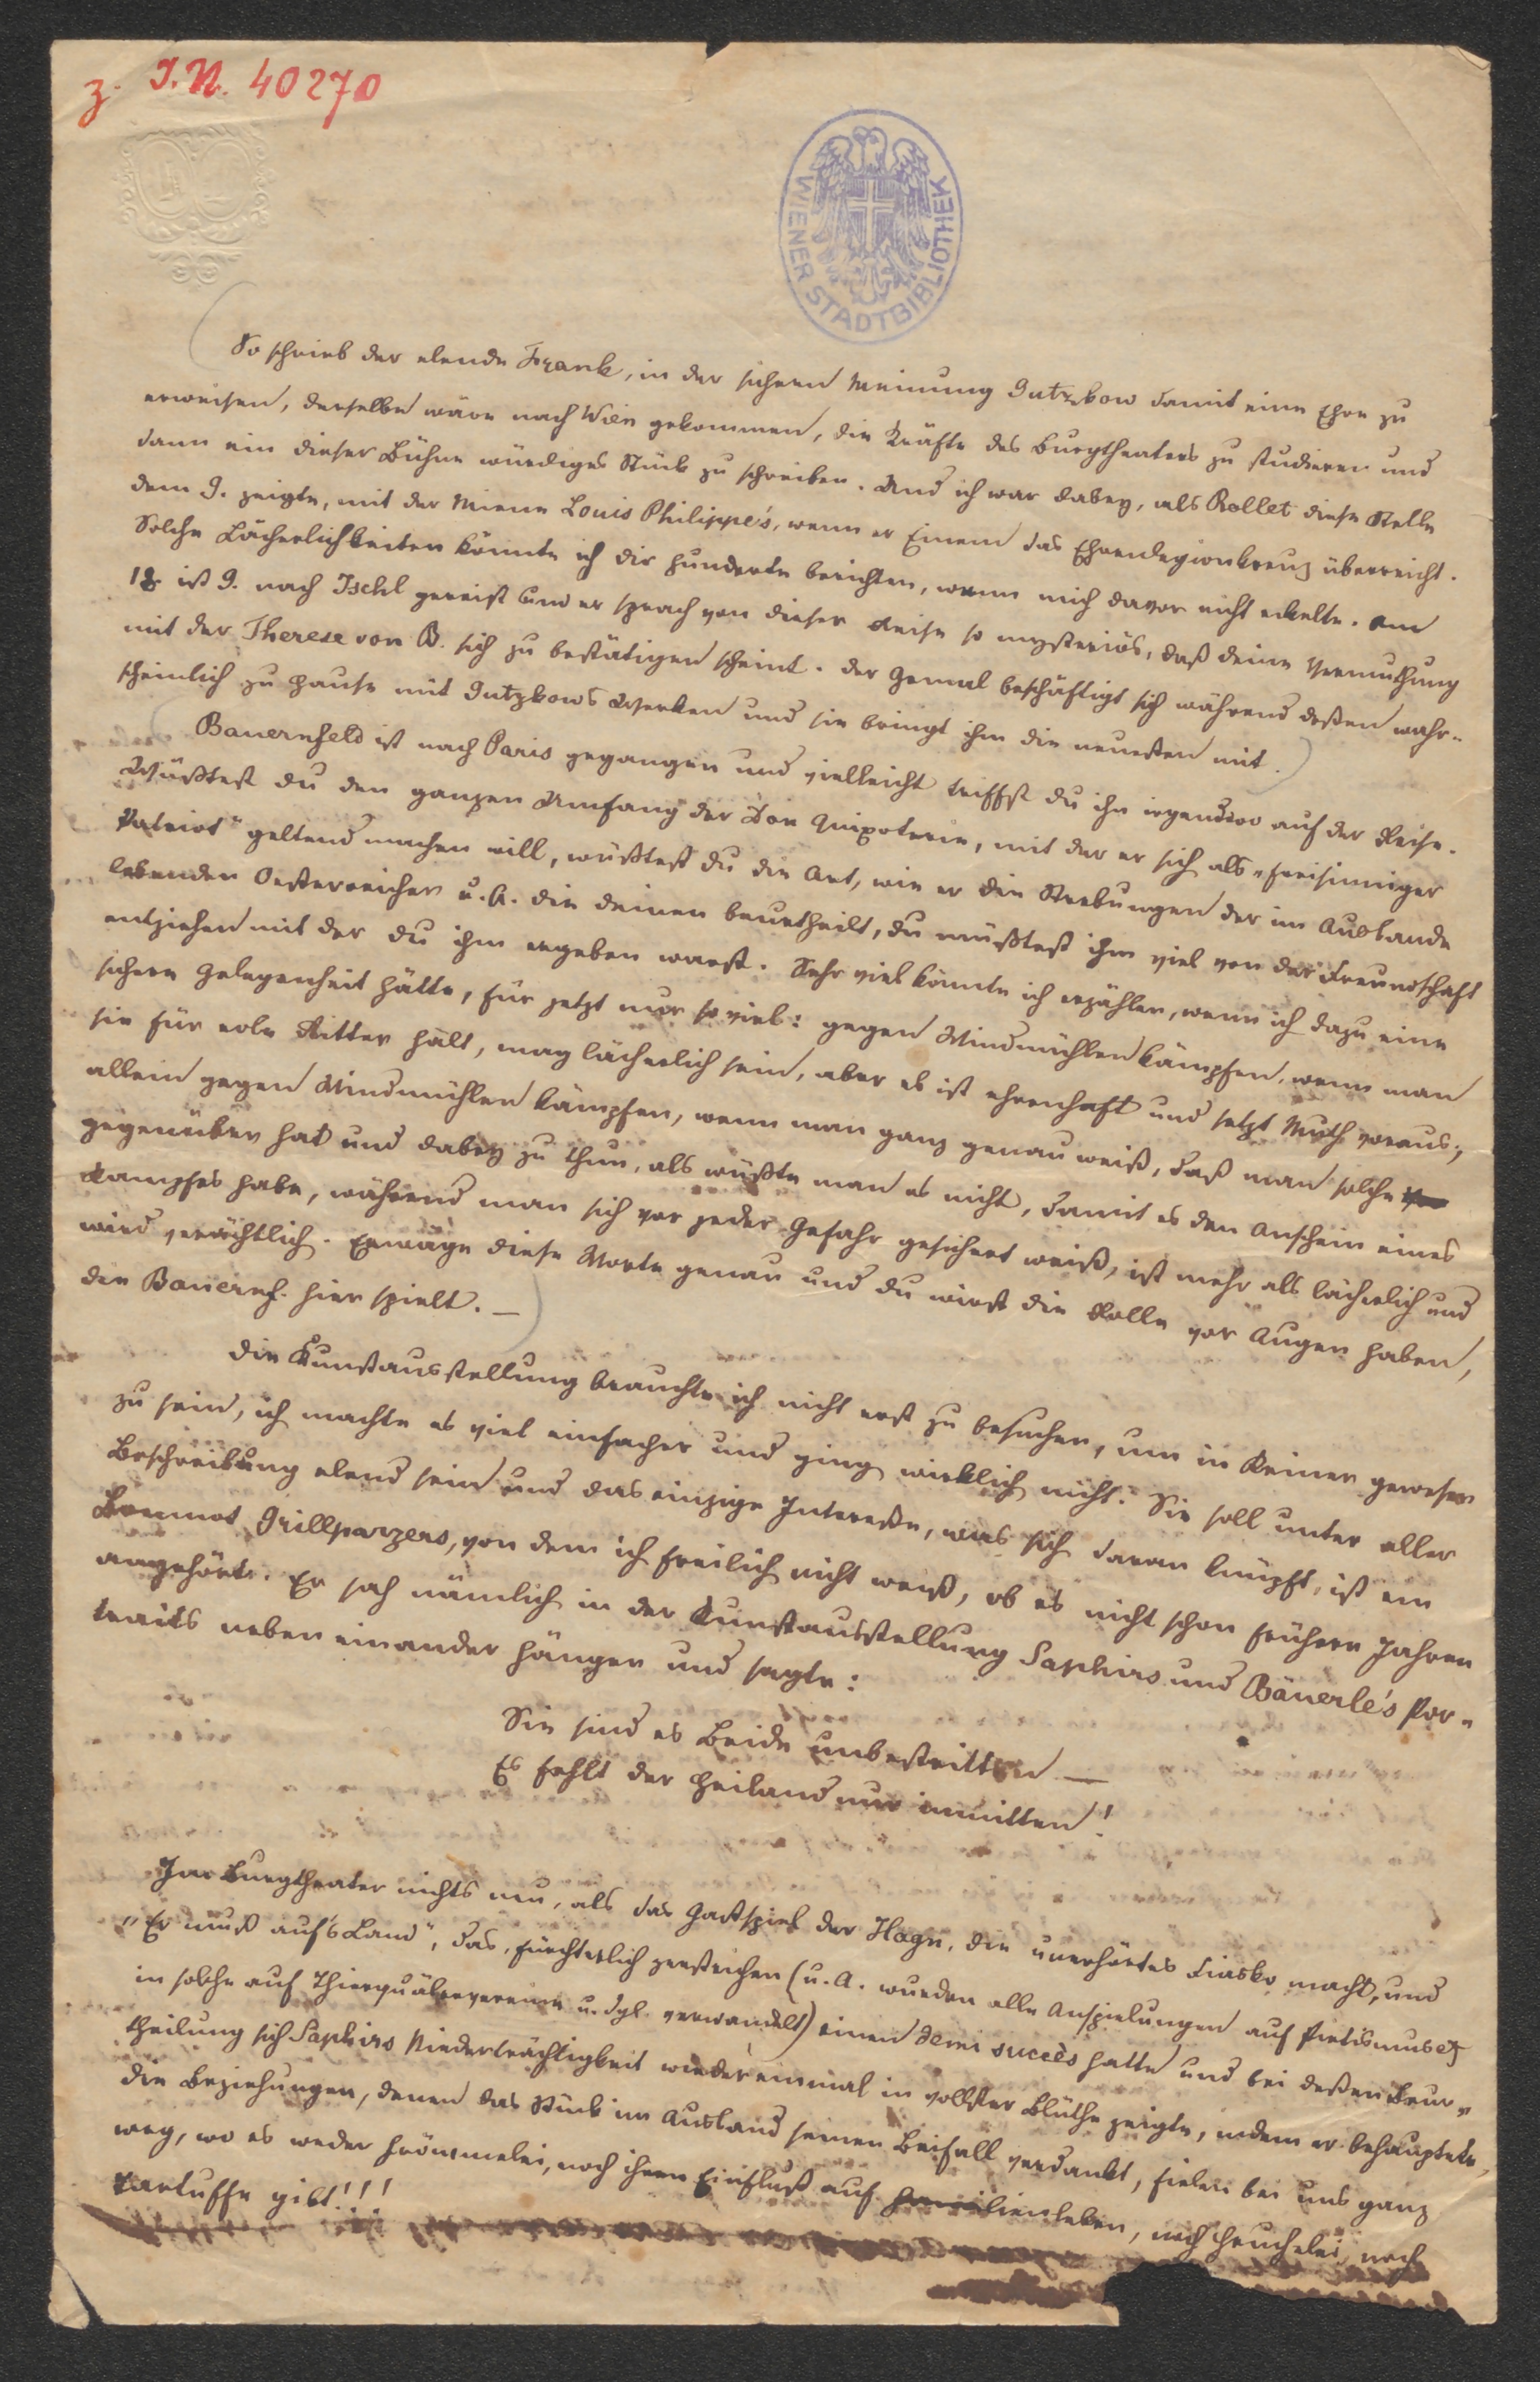 z. I.N. 40270
WIENER STADTBIBLIOTHEK
So schrieb der elende Frank, in der sichern Meinung Gutzkow damit eine Ehre zu
erweisen, derselbe wäre nach Wien gekommen, die Kräfte des Burgtheaters zu studieren und
dann ein dieser Bühne würdiges Stück zu schreiben. Und ich war dabey, als Rollet diese Stelle
dem G. zeigte, mit der Miene Louis Philippe's, wenn er Einem das Ehrenlegionkreuz überreicht.
Solche Lächerlichkeiten könnte ich dir hunderte berichten, wenn mich davor nicht eckelte. Am
18 ist G. nach Ischl gereist und er sprach von dieser Reise so mysteriös, daß deine Vermuthung
mit der Therese von B. sich zu bestätigen scheint. Der Gemal beschäftigt sich während deßen wahr-
scheinlich zu Hause mit Gutzkows Werken und sie bringt ihm die neuesten mit.
Bauernfeld ist nach Paris gegangen und vielleicht triffst du ihn irgendwo auf der Reise.
Wüßtest du den ganzen Umfang der Don Quixoterie, mit der er sich als „freisinniger
Patriot" geltend machen will, wüßtest du die Art, wie er die Strebungen der im Auslande
lebenden Oesterreicher u. A. die deinen beurtheilt, du müßtest ihm viel von der Freundschaft
entziehen mit der du ihm ergeben warst. Sehr viel könnte ich erzählen, wenn ich dazu eine
sichere Gelegenheit hätte, für jetzt nur so viel: gegen Windmühlen kämpfen, wenn man
sie für edle Ritter hält, mag lächerlich sein, aber es ist ehrenhaft und setzt Muth voraus;
allein gegen Windmühlen kämpfen, wenn man ganz genau weiß, daß man solche
gegenüber hat und dabey zu thun, als wüßte man es nicht, damit es den Anschein eines
Kampfes habe, während man sich vor jeder Gefahr gesichert weiß, ist mehr als lächerlich und
wird verächtlich. Erwäge diese Worte genau und du wirst die Rolle vor Augen haben,
die Bauernf. hier spielt. —
Die Kunstausstellung brauchte ich nicht erst zu besuchen, um in keiner gewesen
zu sein, ich machte es viel einfacher und ging wirklich nicht. Sie soll unter aller
Beschreibung elend sein und das einzige Intereße, was sich daran knüpft, ist ein
Bonmot Grillparzers, von dem ich freilich nicht weiß, ob es nicht schon frühern Jahren
angehört. Er sah nämlich in der Kunstausstellung Saphirs und Bäuerle's Por-
traits neben einander hängen und sagte:
Sie sind es Beide unbestritten —
Es fehlt der Heiland nur inmitten!
Im Burgtheater nichts neu, als das Gastspiel der Hagn, die unerhörtes Fiasko macht, und
„Er muß auf's Land", das, fürchterlich zerstrichen (u. A. wurden alle Anspielungen auf Pietismus etz
in solche auf Thierquälervereine u. dgl. verwandelt) einen demi succès hatte und bei deßen Beur-
theilung sich Saphirs Niederträchtigkeit wieder einmal in vollster Blüthe zeigte, indem er behauptete,
die Beziehungen, denen das Stück im Ausland seinen Beifall verdankt, fielen bei uns ganz
weg, wo es weder Frömmelei, noch ihren Einfluß auf Familienleben, noch Heuchelei, noch
Tartuffe gibt!!!